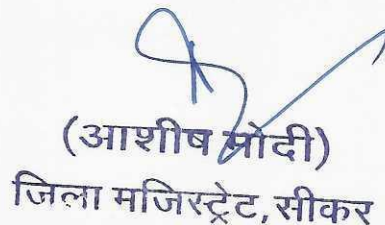 (आशीष मोदी)
जिला मजिस्ट्रेट,सीकर